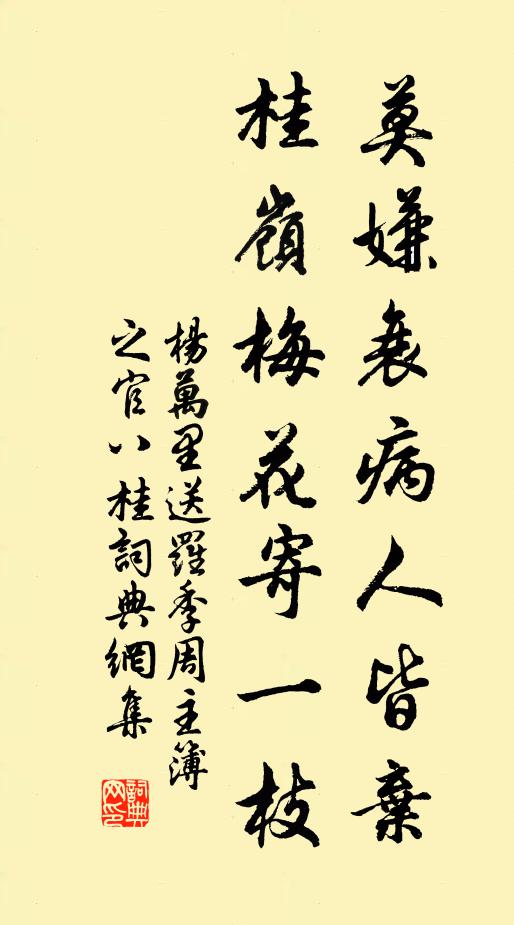 莫嫌衰病人皆棄
桂嶺梅花寄一枝
楊萬里送羅季周主簿
之官八桂詞典網集
詞典網印